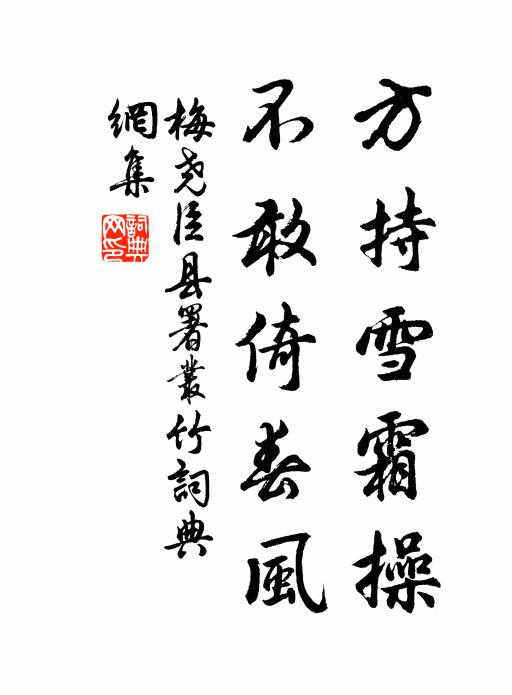 方持雪霜操
不敢倚春風
梅尧臣县署叢竹詞典
網集
詞典
网印